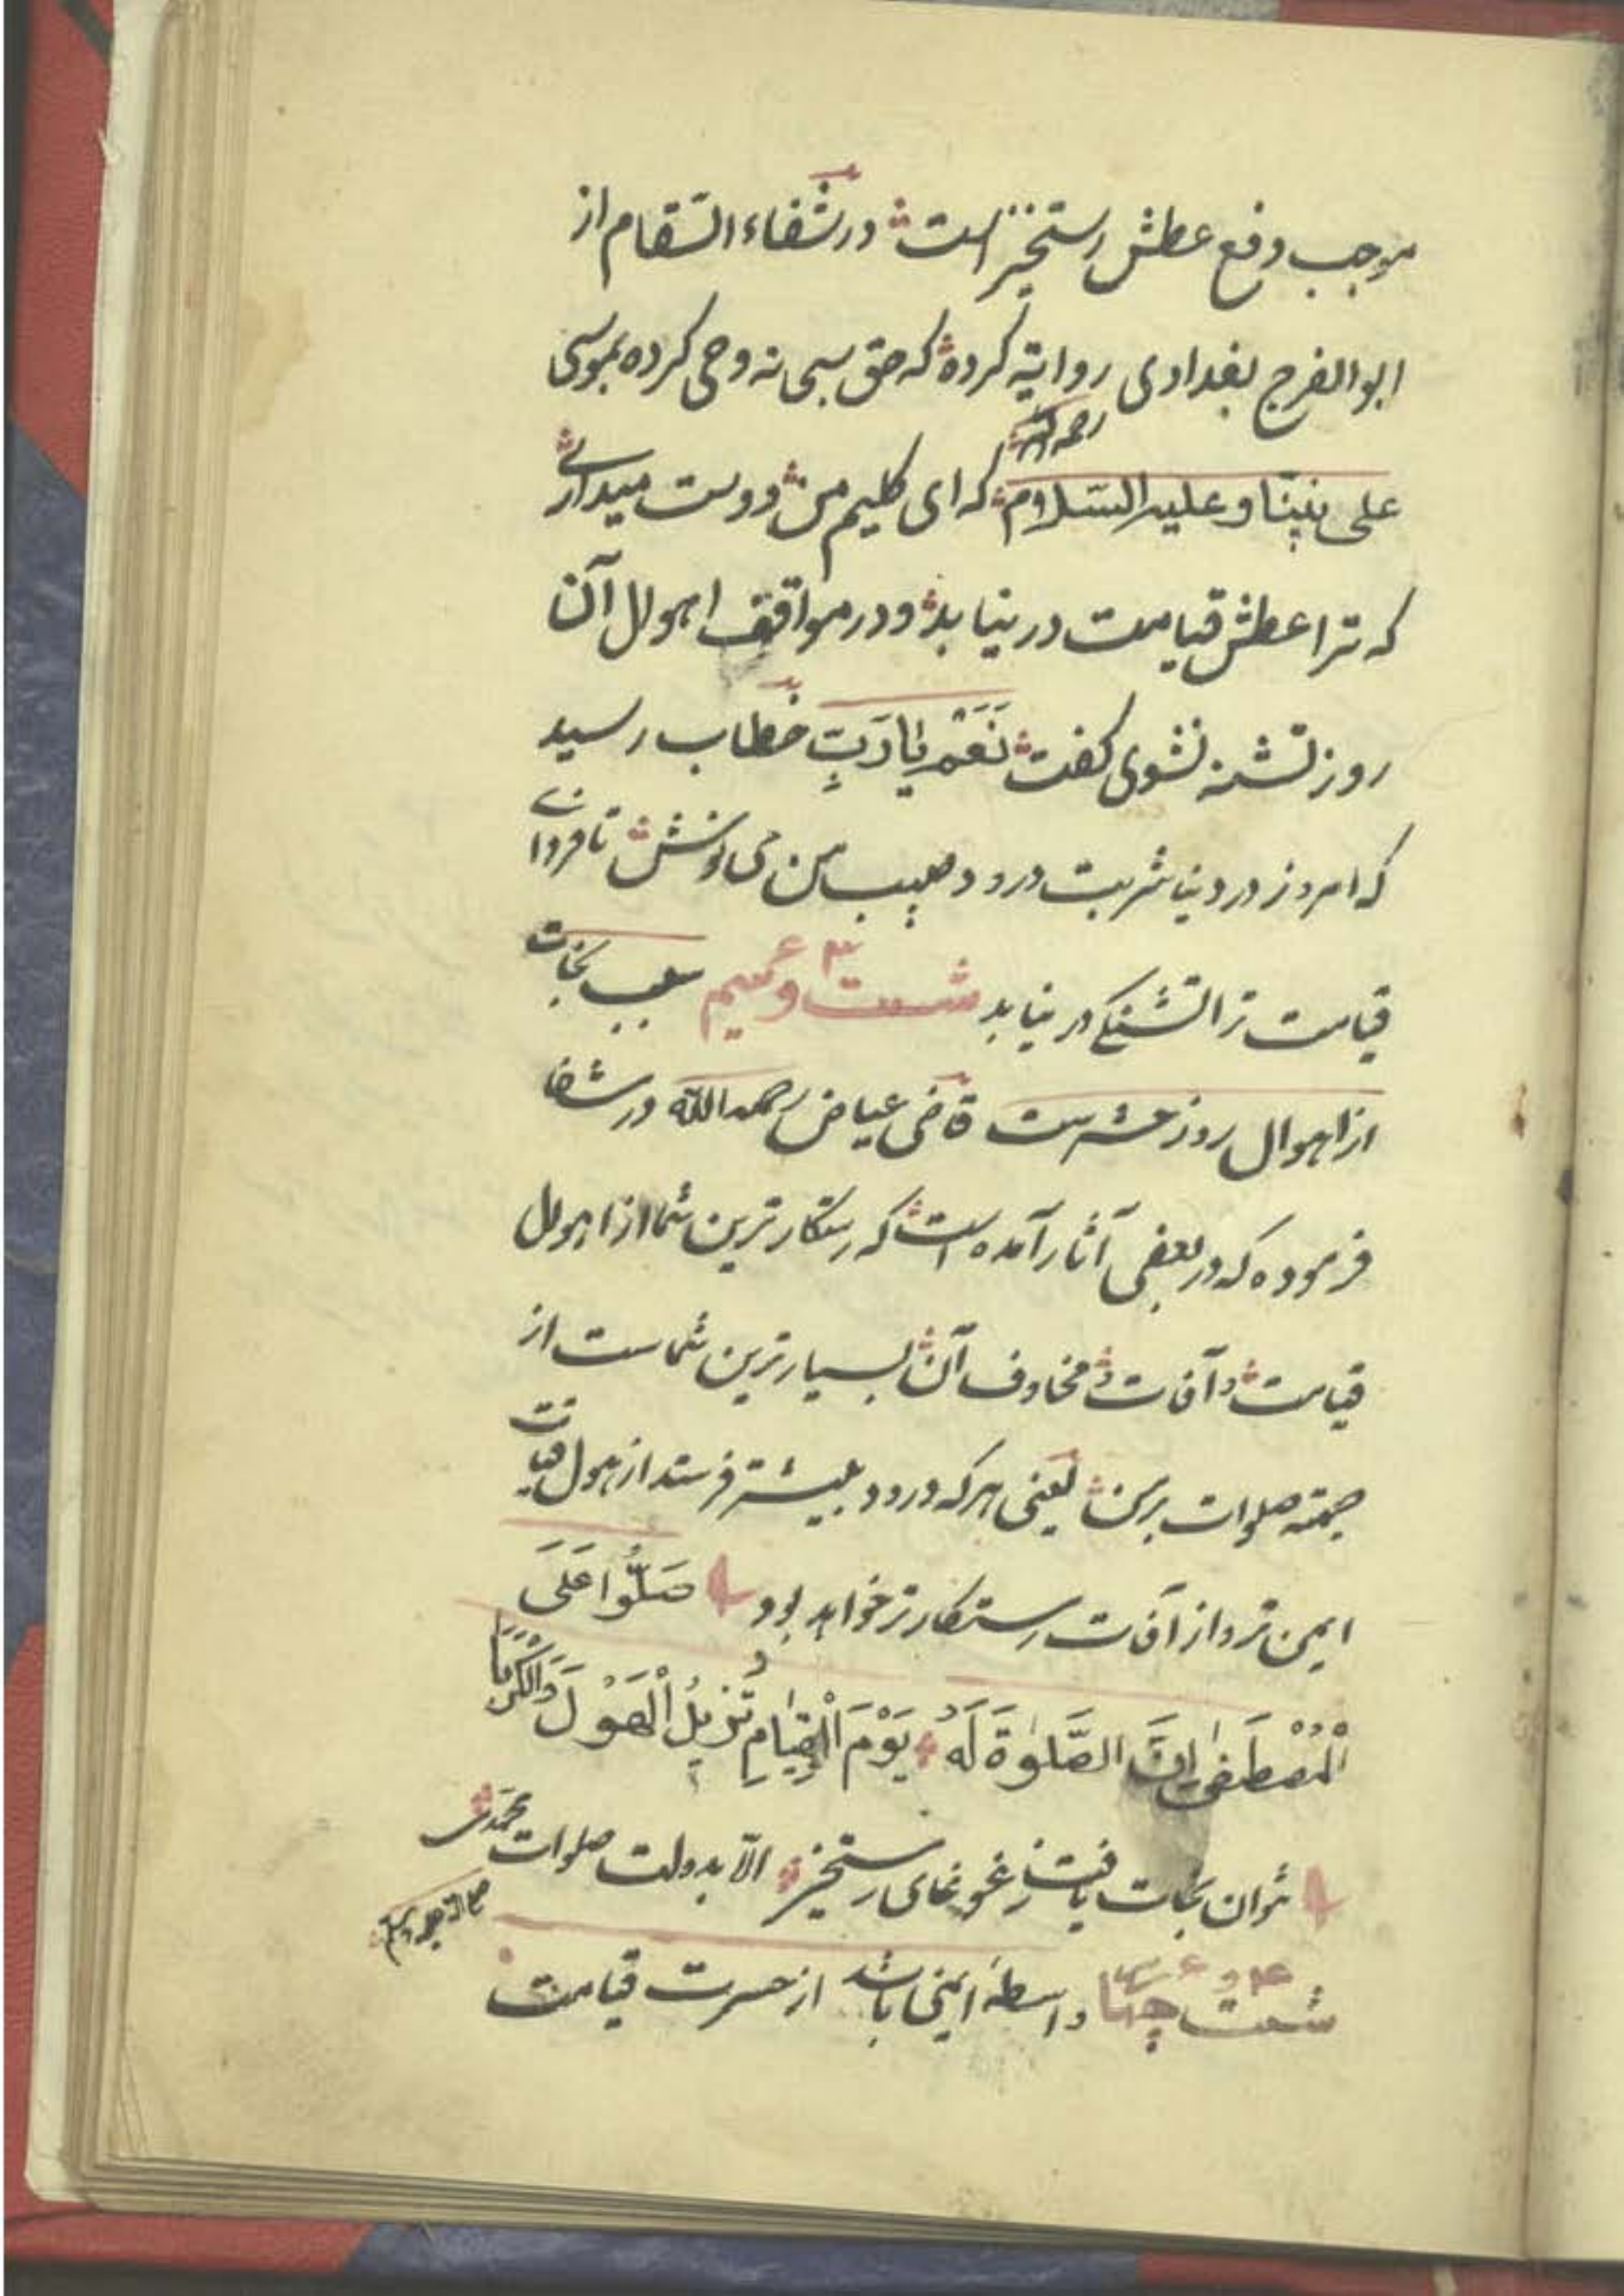 موجب دفع عطش رستخیز است در شفاء السقام از
ابو الفرج بغدادی روایة کرده که حق سبحانه وحی کرده بموسی
رحمه الله
علی نبینا و علیه السلام که ای کلیم من دوست میداری
که ترا عطش قیامت در نیابد و در مواقف اهوال آن
روز تشنه نشوی کفت نَعَمْ یا رَبِّ خطاب رسید
که امروز در دنیا شربت درود حبیب من می نوش تا فردای
قیامت ترا تشنکی در نیابد شصت و سیم ۶۳ سبب نجات
از اهوال روز حشرست قاضی عیاض رحمه الله در شفا
فرموده که در بعضی آثار آمده است که رستکارترین شما از اهوال
قیامت و آفات و مخاوف آن بسیارترین شماست از
جهة صلوات بر من یعنی هر که درود بیشتر فرستد از هول قیامت
ایمن تر و از آفات رستکارتر خواهد بود صَلُّوا عَلَی
الْمُصْطَفٰی اِنَّ الصَّلٰوةَ لَهُ یَوْمَ الْقِیٰامِ تُزِیلُ الْهَوْلَ وَالْکَرْبَا
نتوان نجات یافت ز غوغای رستخیز الّا بدولت صلوات محمدی
صلی الله علیه وسلم
شصت و چهارم ۶۴ واسطهٔ ایمنی باشد از حسرت قیامت